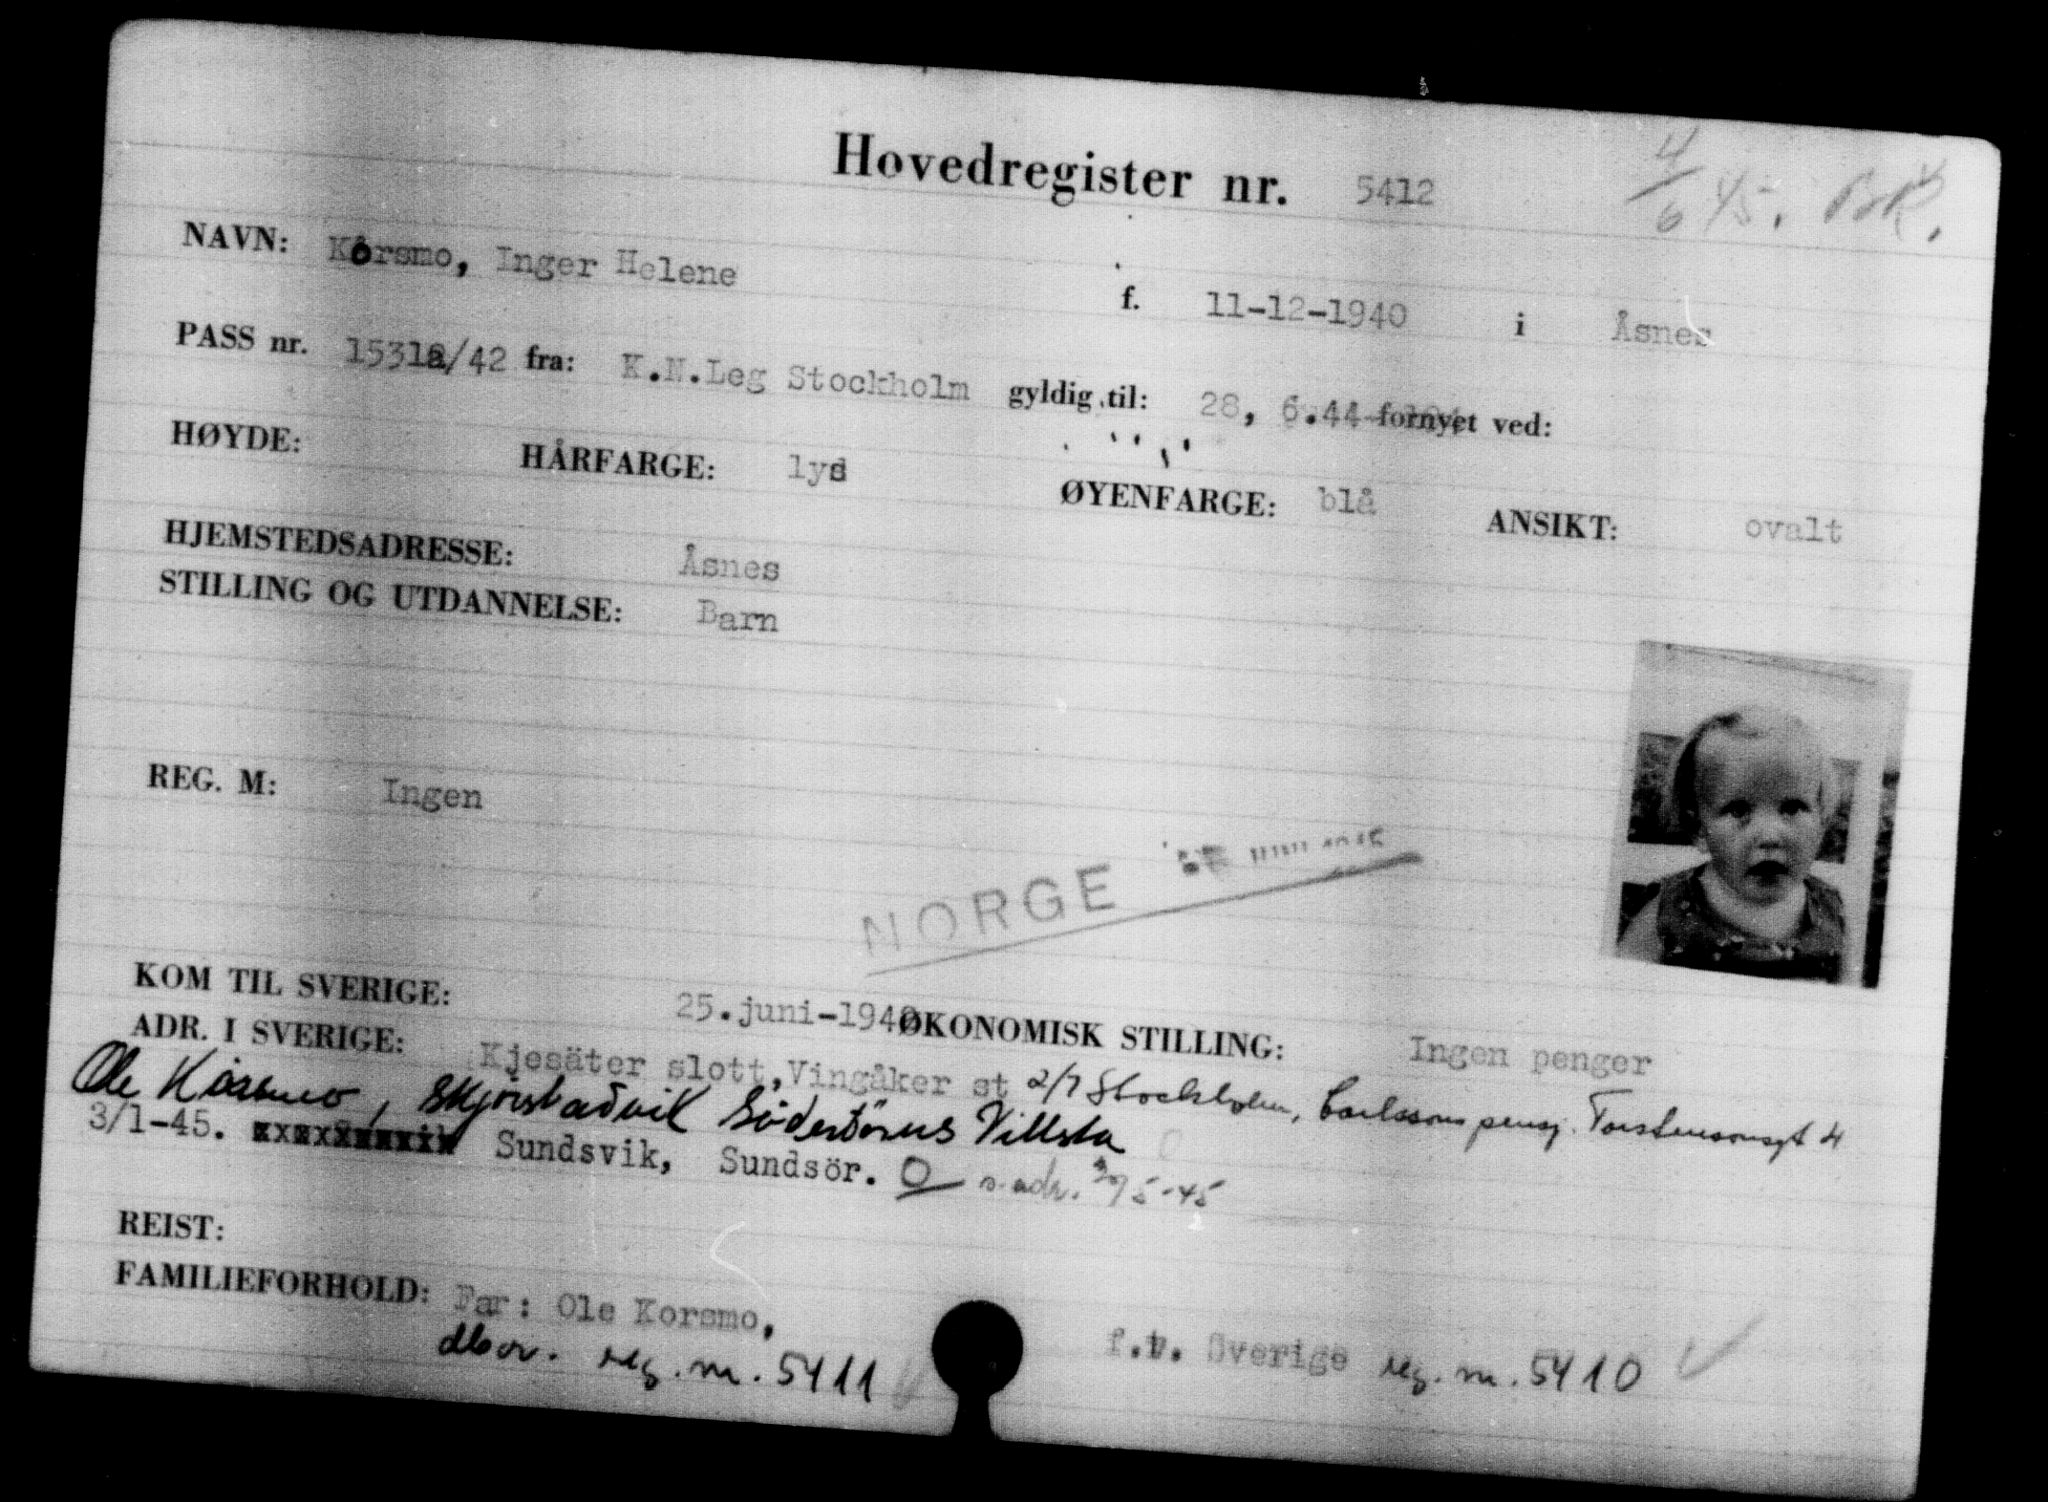 Hovedregister nr. 5412 4/6 45.
NAVN: Korsmo, Inger Helene f. 11-12-1940 i Åsnes
PASS nr. 15312/42 fra: K.N.Leg Stockholm gyldig til: 28, 6.44 fornyet ved:
HØYDE: HÅRFARGE: lys ØYENFARGE: blå ANSIKT: ovalt
HJEMSTEDSADRESSE: Åsnes
STILLING OG UTDANNELSE: Barn
REG. M: Ingen
NORGE
KOM TIL SVERIGE: 25.juni-194 ØKONOMISK STILLING: Ingen penger
ADR. I SVERIGE: Kjesäter slott, Vingåker st 2/7 Stockholm, Carlssons pensj. Torstensonsgt 4
Ole Korsmo, Södertörns Villsta
3/1-45. Sundsvik, Sundsör. s. adr. 5-45
REIST:
FAMILIEFORHOLD: Far: Ole Korsmo, f.t. Sverige reg. nr. 5410
Mor. reg. nr. 5411